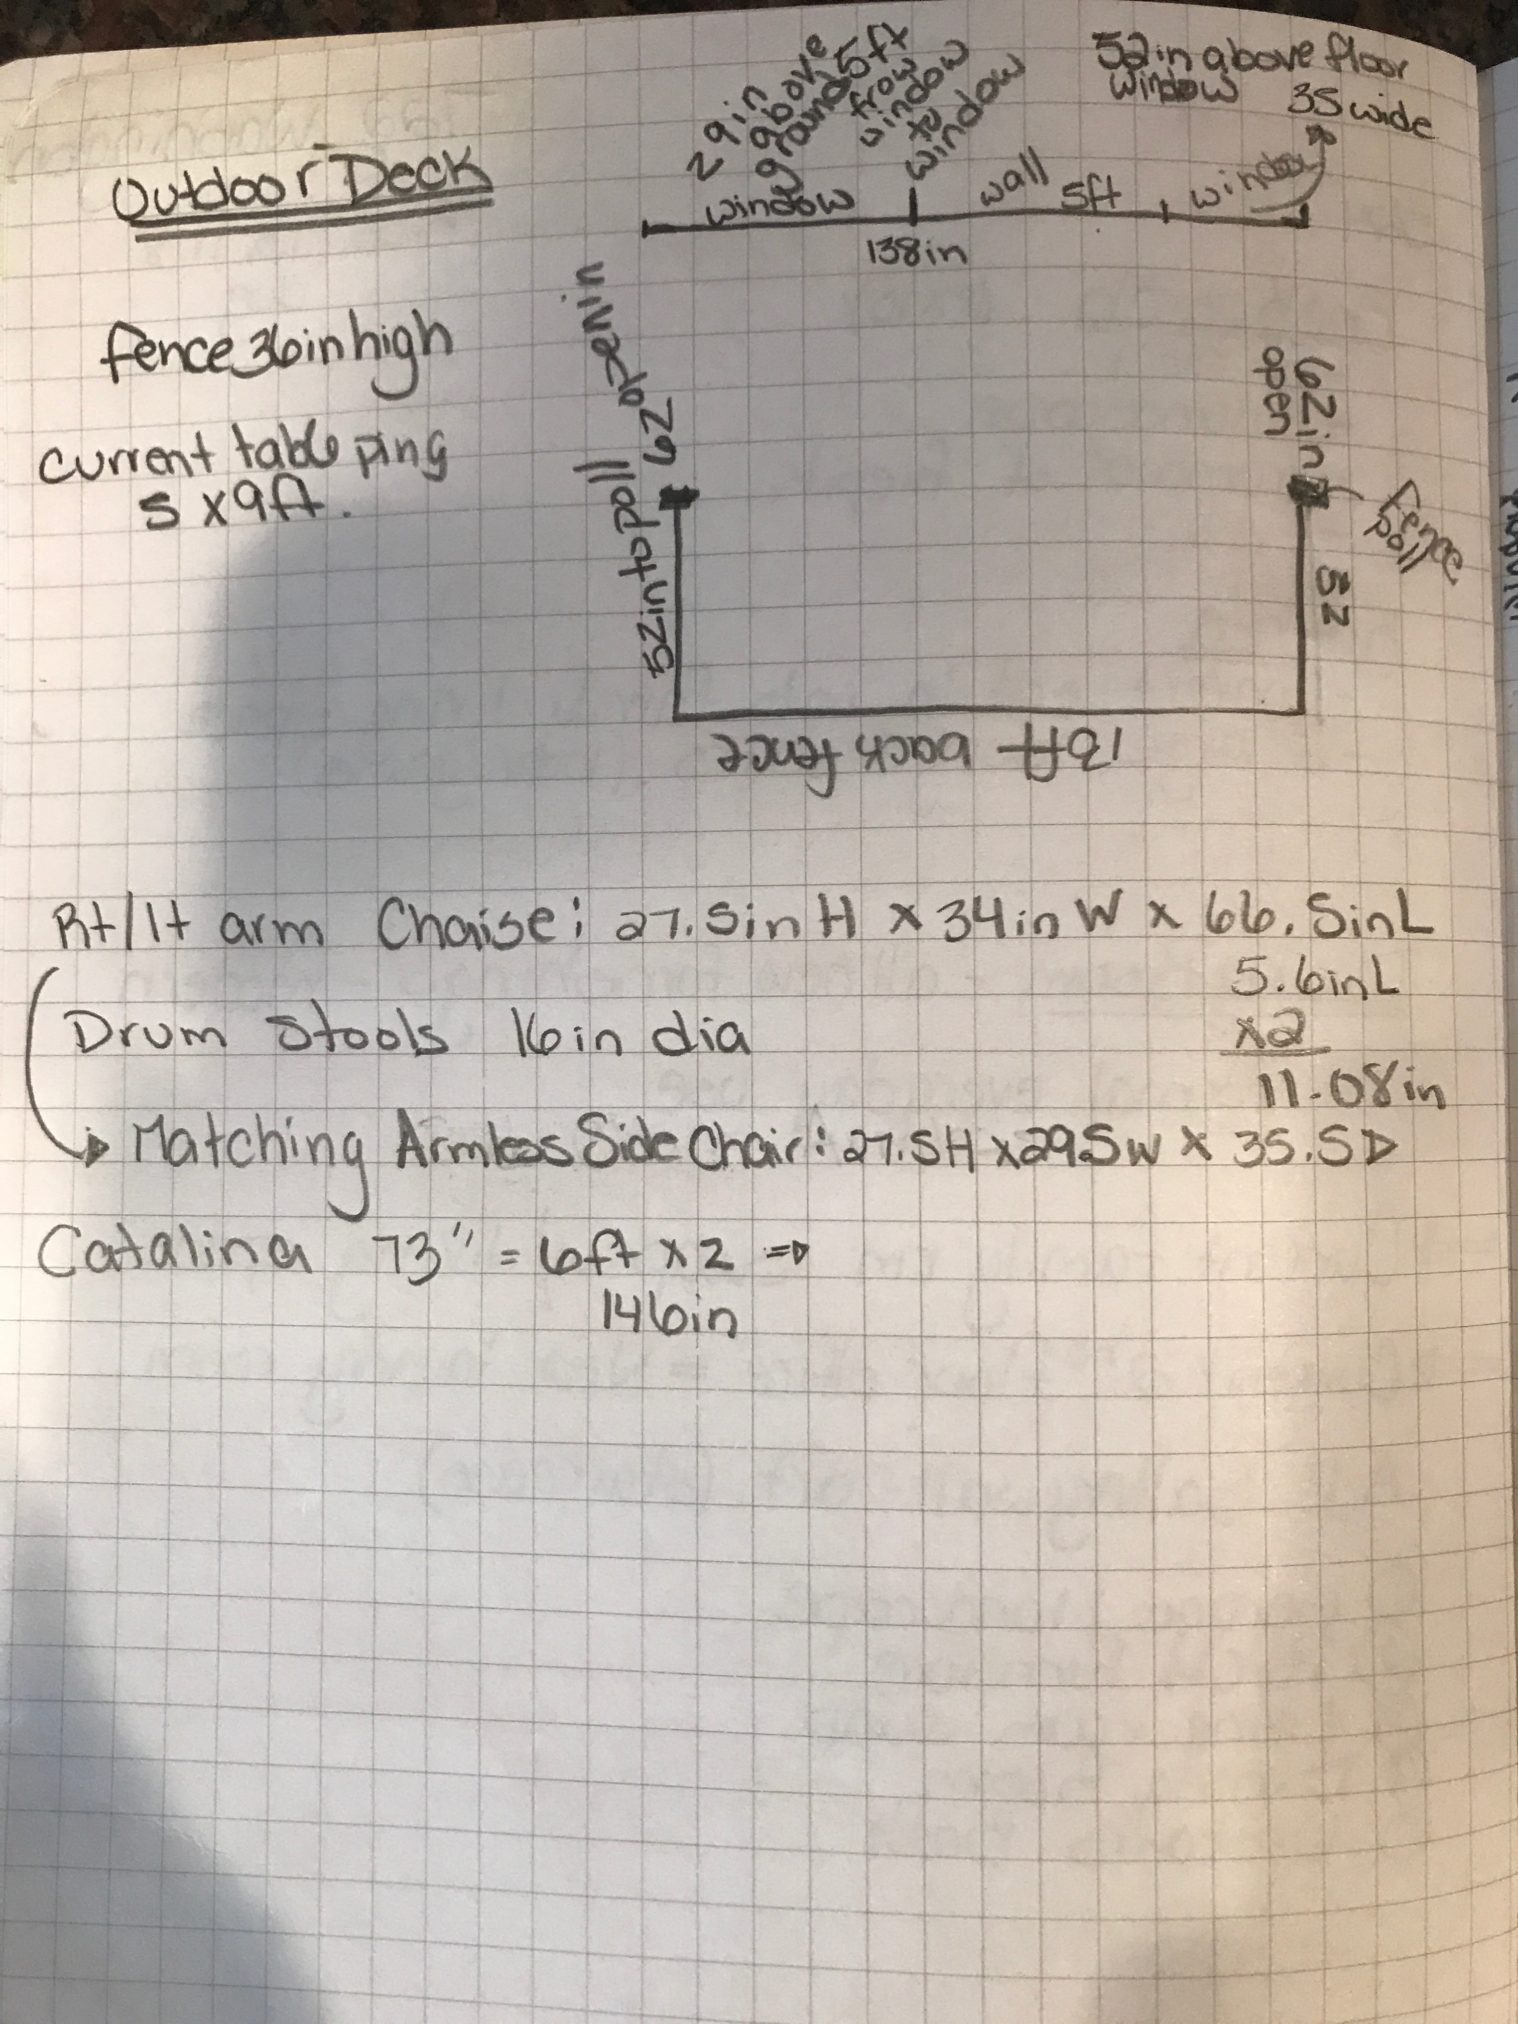 Outdoor Deck
29 in
above
ground
5ft
from
window
to
window
52 in above floor
window
35 wide
window
wall 5ft
window
138in
fence 36in high
62 open in
62in
open
current table ping
5 x 9ft.
Fence
poll
52 in to poll
52
back fence
Rt/lt arm Chaise: 27.5in H x 34in W x 66.5in L
5.6in L
Drum Stools 16in dia
x2
11.08in
Matching Armless Side Chair: 27.5H x 29.5W x 35.5D
Catalina 73" = 6ft x 2 ⇒
146in